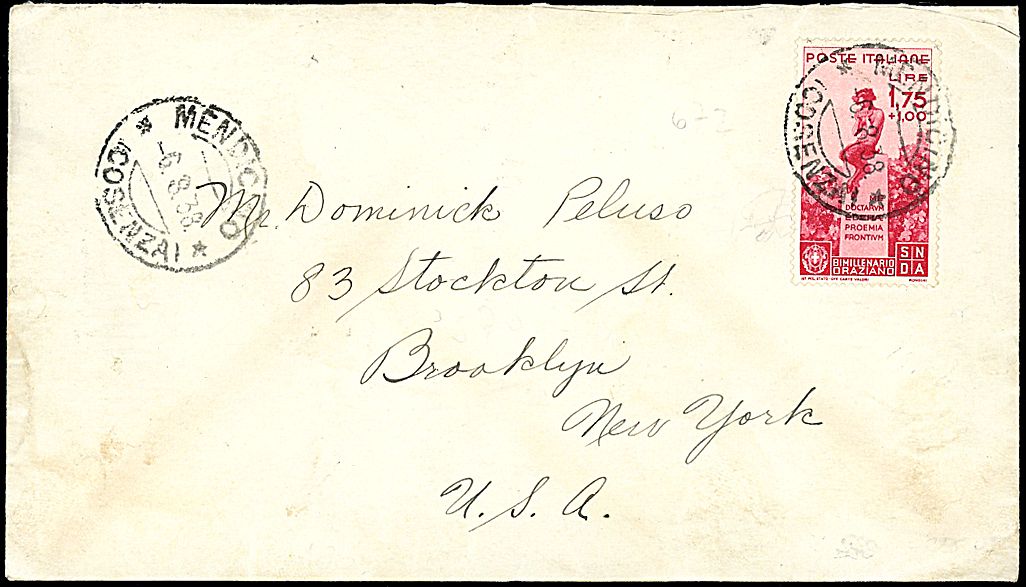 MENDICINO
-6.8.38
(COSENZA)
POSTE ITALIANE
LIRE
1,75
+1,00
DOCTARVM
EDERAE
PROEMIA
FRONTIVM
BIMILLENARIO
ORAZIANO
S N
D A
IST. POL. STATO OFF. CARTE VALORI
MENDICINO
(COSENZA)
6-2
Mr. Dominick Peluso
83 Stockton St.
Brooklyn
New York
U. S. A.